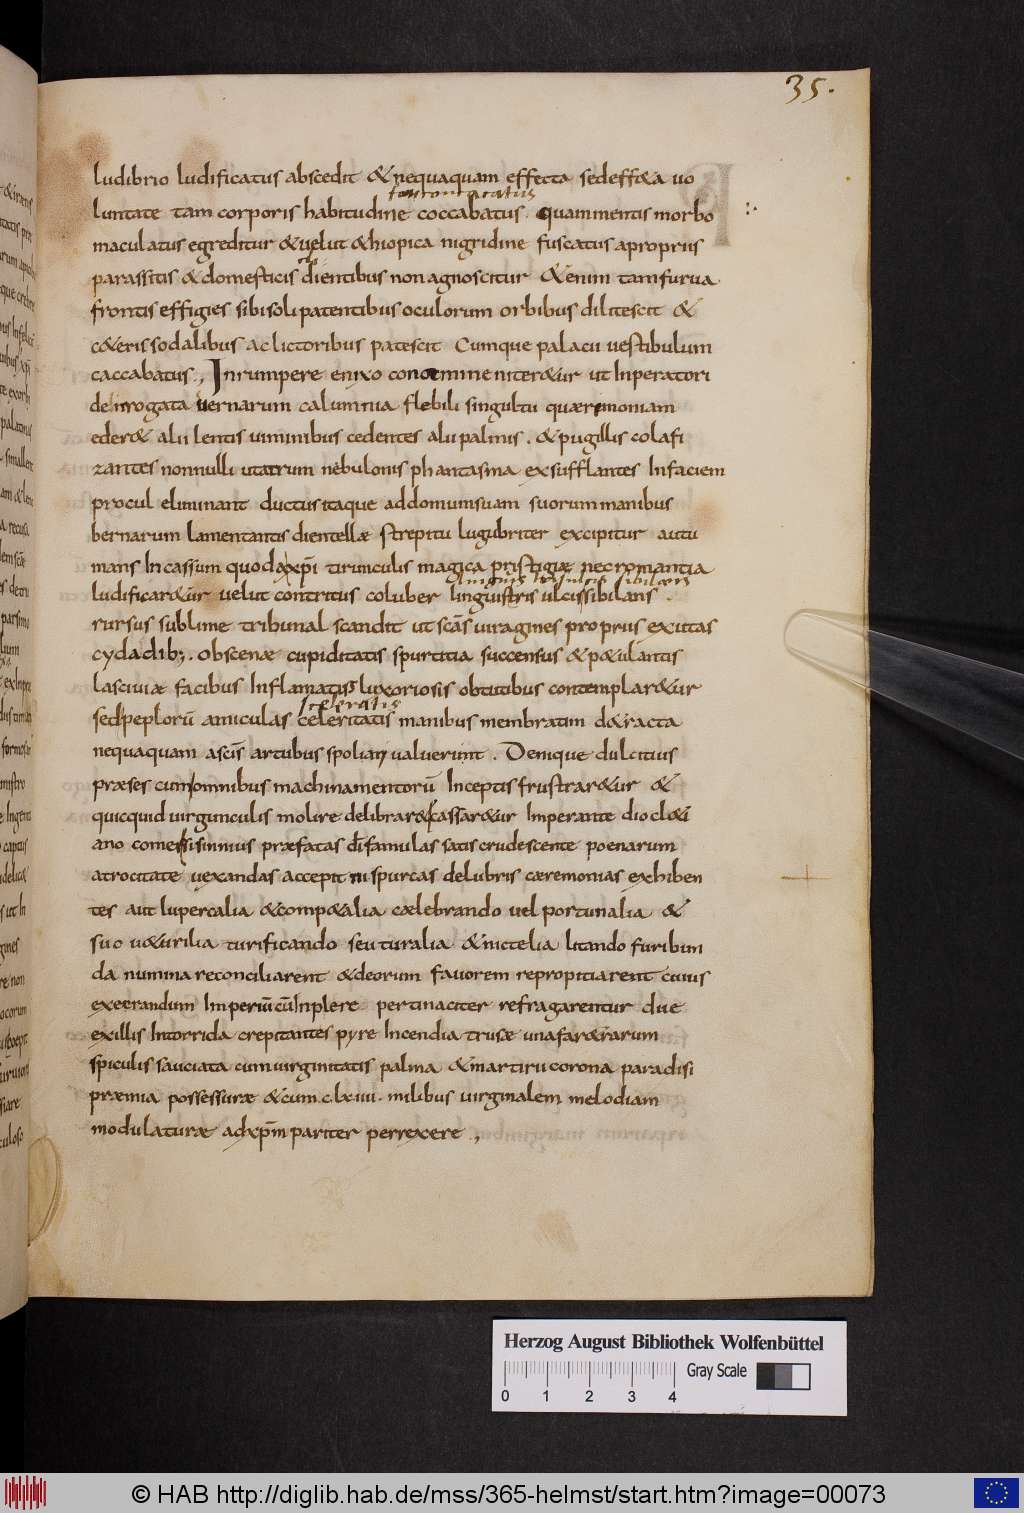 35.
ludibrio ludificatus abscedit & nequaquam effecta sed eff&a uo
luntate tam corporis habitudine coccabatus. quam mentis morbo
maculatus egreditur & uelut &hiopica nigridine fuscatus a propriis
parassitis & domesticis dientibus non agnoscitur &enim tam furua
frontis effigies sibi soli patentibus oculorum orbibus dilitescit &
c&eris sodalibus ac lictoribus patescit Cumque palacii uestibulum
caccabatus., Inrumpere enixo conamine niter&ur ut Inperatori
de irrogata uernarum calumnia flebili singultu quærimoniam
eder& alii lentis uiminibus cedentes alii palmis. & pugillis colafi
zantes nonnulli ut atrum nebulonis phantasma exsufflantes In faciem
procul eliminant ductus itaque ad domum suam suorum manibus
bernarum lamentantis dientellæ strepitu lugubriter excipitur autu
mans In cassum quod a xp̄i tirunculis magica pristigiæ necromantia
linguis trisulcis sibilans
ludificar&ur uelut contritus coluber linguistris ulcissibilans.
rursus sublime tribunal scandit ut scās uiragines propriis exutas
cycladib;. obscenæ cupiditatis spurtitia succensus & p&ulantis
lasciuiæ facibus Inflamatis luxoriosis obtutibus contemplar&ur
sceleratis
sed peplorū amiculas celeritatis manibus membratim d&racta
nequaquam a scīs artubus spoliari ualuerunt. Denique dulcitius
præses cum omnibus machinamentorū Inceptis frustrar&ur &
quicquid uirgunculis molire delibrar& cassar&ur Imperante diocl&i
ano comes sisinnius præfatas d̄i famulas satis crudescente poenarum
atrocitate uexandas accepit ni spurcas delubris cæremonias exhiben
tes aut lupercalia & comp&alia cælebrando uel portunalia &
suou&urilia turificando seu turalia & nictelia litando furibun
da numina reconciliarent & deorum fauorem repropitiarent cuius
execrandum Imperiū cū Inplere pertinaciter refragarentur due
ex illis In torrida crepitantes pyre Incendia trusæ una far&rarum
spiculis sauciata cum uirginitatis palma & martirii corona paradisi
præmia possessuræ & cum .c.lxiiii. milibus uirginalem melodiam
modulaturæ ad xp̄m pariter perrexere.,
Herzog August Bibliothek Wolfenbüttel
Gray Scale
0 1 2 3 4
© HAB http://diglib.hab.de/mss/365-helmst/start.htm?image=00073